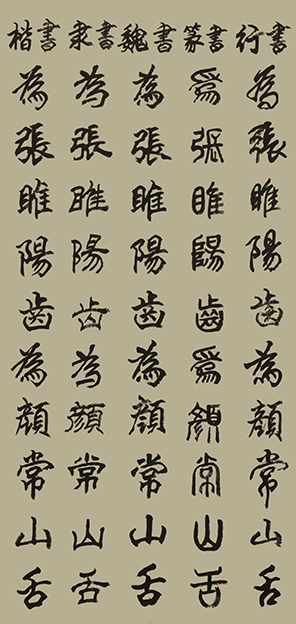 楷書 隶書 魏書 篆書 行書
為 為 為 爲 為
張 張 張 張 張
睢 睢 睢 睢 睢
陽 陽 陽 陽 陽
齒 齒 齒 齒 齒
為 為 為 爲 為
顔 顔 顔 顔 顔
常 常 常 常 常
山 山 山 山 山
舌 舌 舌 舌 舌